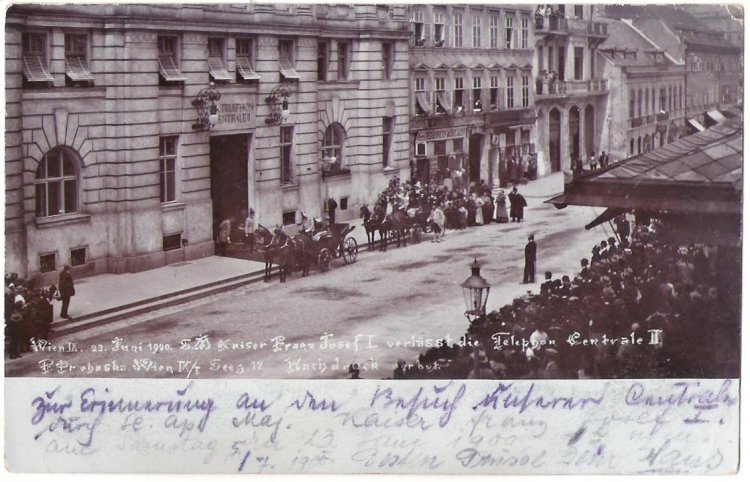 K.K.
TELEPHON
CENTRALE II
Wien IX. 23. Juni 1900. S.M. Kaiser Franz Josef I. verlässt die Telephon Centrale II
Wien IX/1 Seeg. 12. Nachdruck verbot.
Zur Erinnerung an den Besuch unserer Centrale
durch Se. Ap. Maj. Kaiser Franz Josef I.
am Samstag den 23 Juni 1900
Besten Grüsse Hans